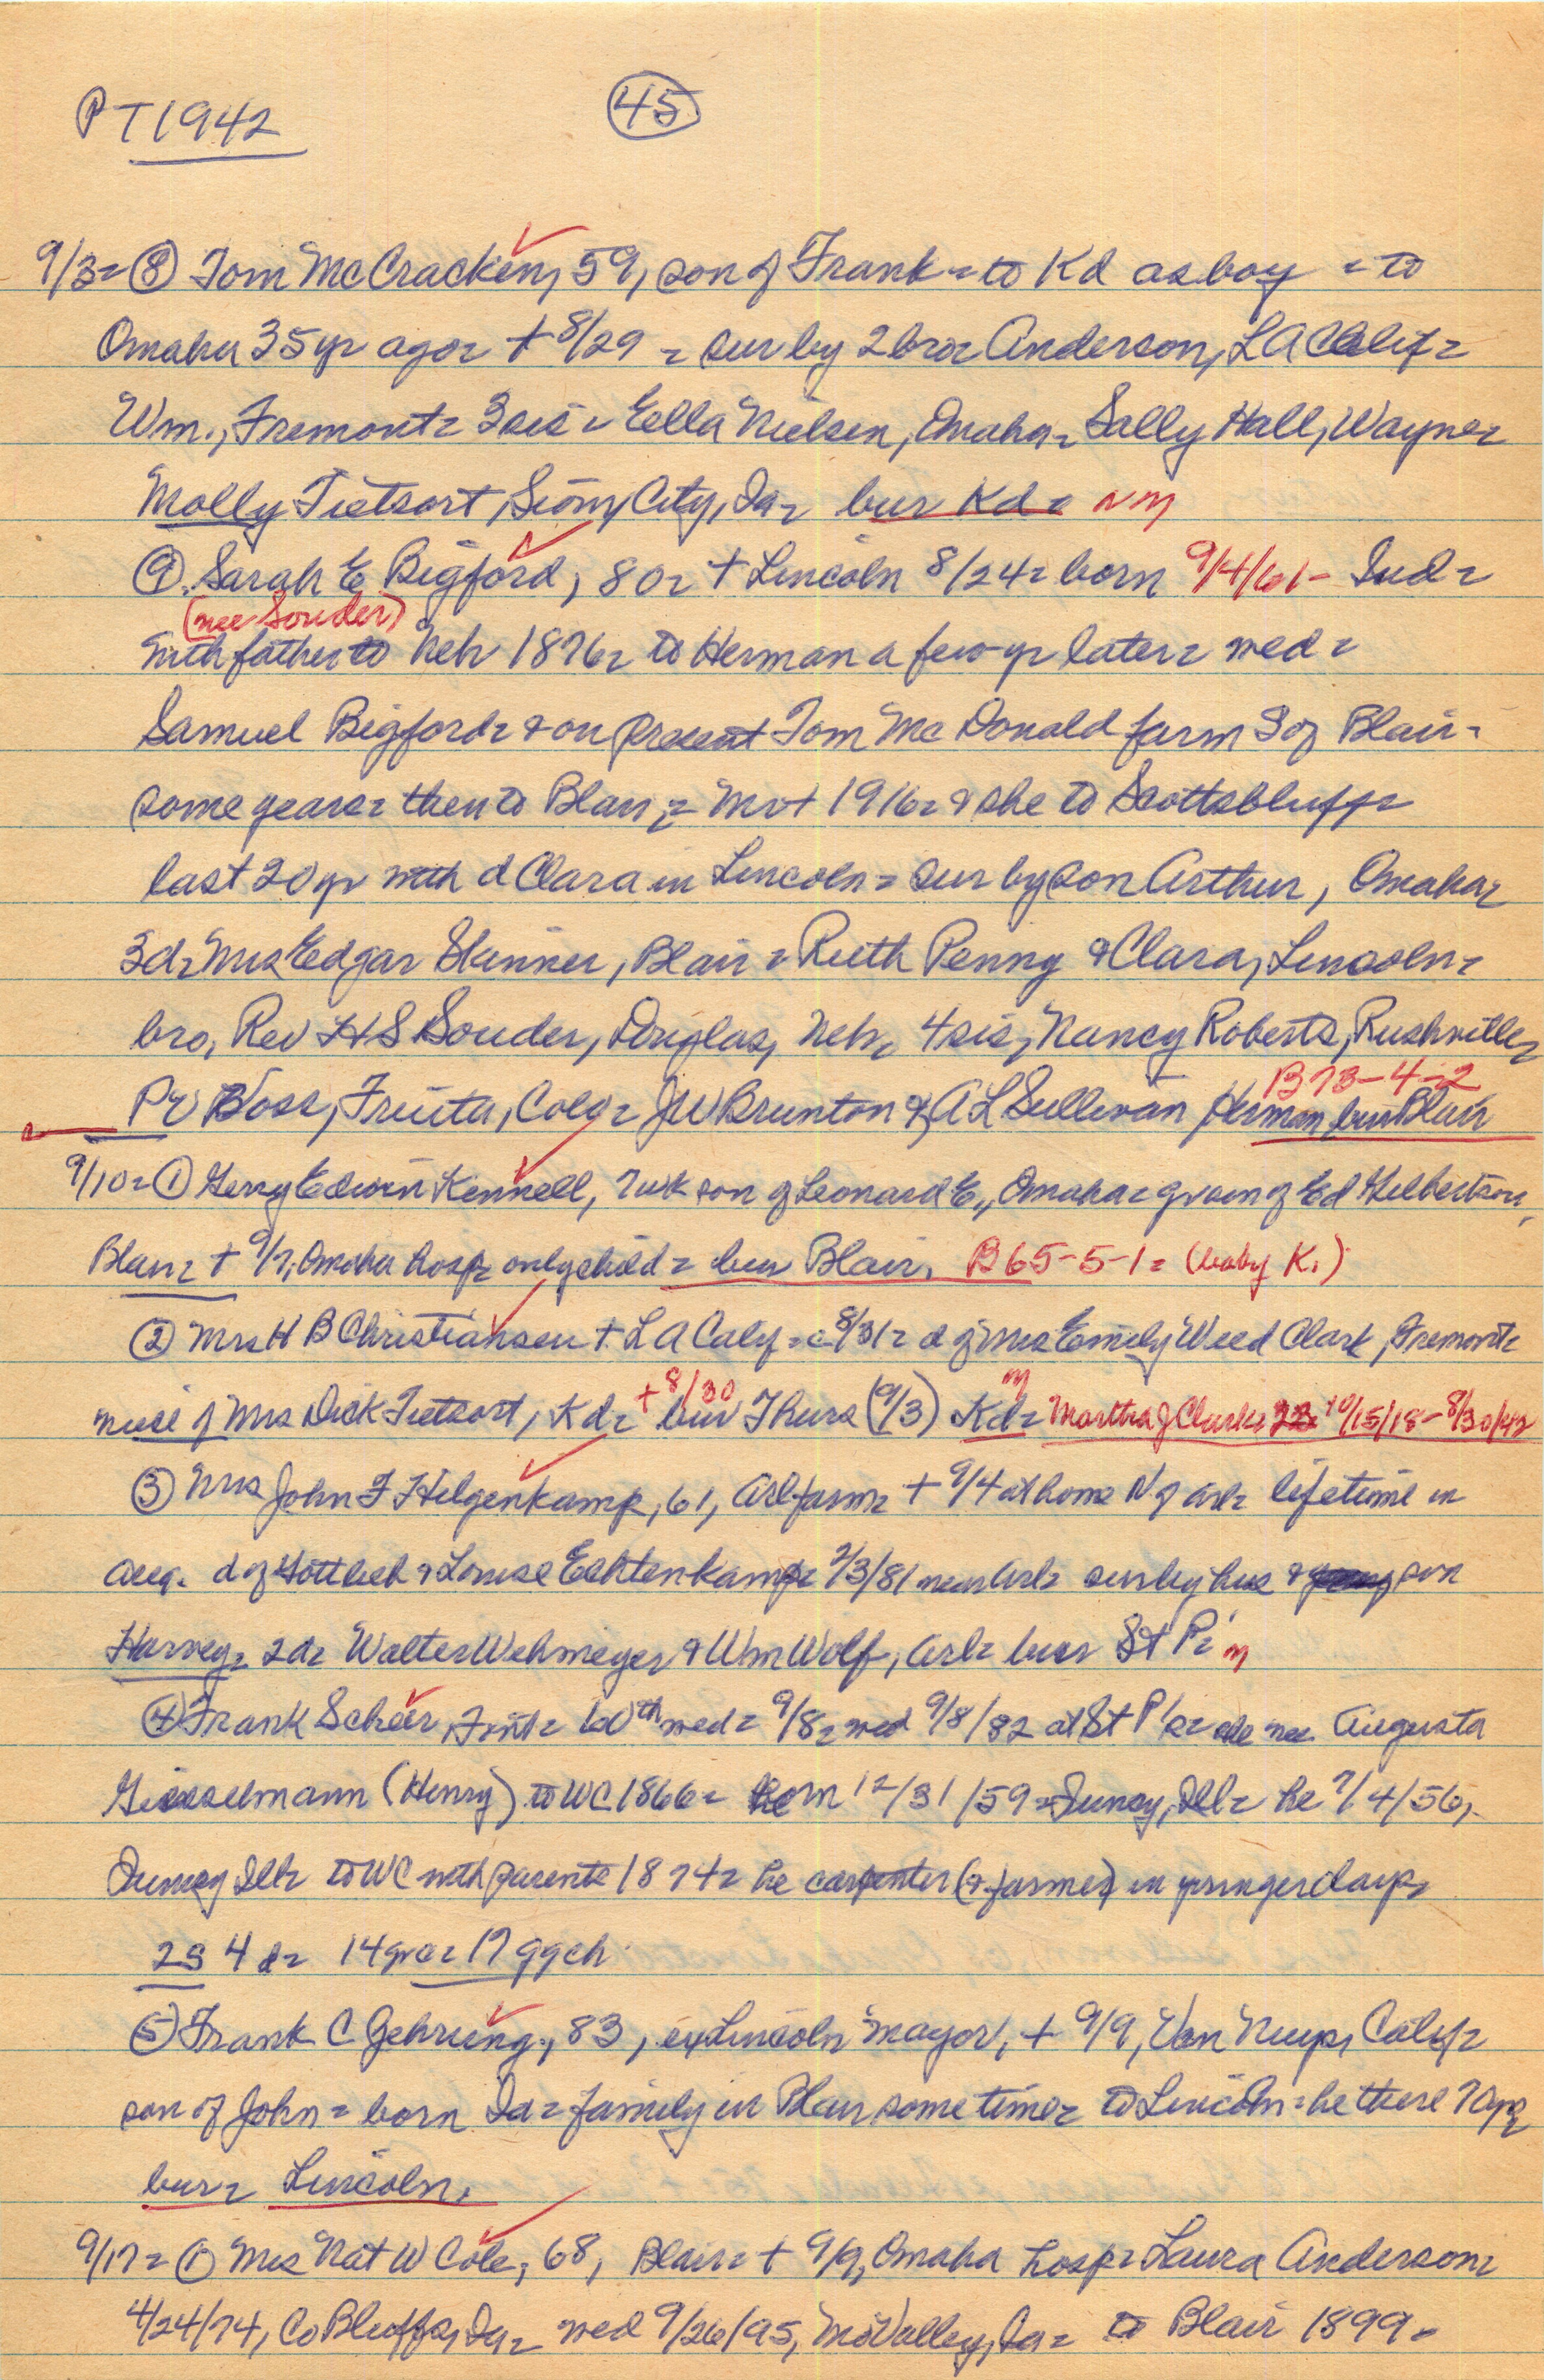 PT 1942
45
9/3= ⑧ Tom McCracken, 59, son of Frank = to Kd as boy = to
Omaha 35 yr ago= + 8/29 = sur by 2 bro= Anderson, LA Calif=
Wm., Fremont= 3 sis = Eella Nielsen, Omaha= Sally Hall, Wayne=
Molly Tietsort, Sioux City, Ia= bur Kd= nm
⑨ Sarah E Bigford, 80= + Lincoln 8/24= born 9/4/61- Ind=
(nee Souder)
with father to Neb 1876= to Herman a few yr later= wed=
Samuel Bigford= & on present Tom McDonald farm S of Blair=
some years= then to Blair,= Mr + 1916= & she to Scottsbluff=
last 20 yr with d Clara in Lincoln= sur by son Arthur, Omaha=
3d= Mrs Edgar Skinner, Blair= Ruth Penny & Clara, Lincoln=
bro, Rev HS Souder, Douglas, Neb= 4 sis, Nancy Roberts, Rushville=
B73-4-2
Voss, Fruita, Colo= JW Brunton & AL Sullivan Herman bur Blair
9/10= ① Gerry Edwin Kennell, 7wk son of Leonard E., Omaha= gr son of Ed Hilbertson,
Blair= + 9/7, Omaha hosp= only child= bur Blair. B65-5-1= (baby K.)
② Mrs H B Christiansen + LA Calif= c 8/31= d of Mrs Emily Weed Clark, Fremont=
+ 8/30 m
niece of Mrs Dick Tietsort, Kd= bur Thurs (9/3) Kd= Martha J Clark= 23= 10/15/18-8/30/42
③ Mrs John F Hilgenkamp, 61, Arl farm= + 9/4 at home N of Arl= lifetime in
area. d of Gottlieb & Louise Echtenkamp= 2/3/81 near Arl= sur by hus & son
Harvey= 2d= Walter Wehmeyer & Wm Wolf, Arl= bur St P= m
④ Frank Scheer, Font= 60th wed= 9/8= wed 9/8/82 at St P's= she nee Augusta
Giesselmann (Henry) to WC 1866= born 12/31/59= Quincy, Ill= he 7/4/56,
Quincy Ill= to WC with parents 1874= he carpenter (& farmer) in younger days=
2S 4d= 14 grc= 17 ggch
⑤ Frank C Gehring, 83, ex Lincoln mayor, + 9/9, Van Nuys, Calif=
son of John= born Ia= family in Blair sometime= to Lincoln= he there 70yr=
bur= Lincoln.
9/17= ① Mrs Nat W Cole, 68, Blair= + 9/9, Omaha hosp= Laura Anderson=
4/24/74, Co Bluffs, Ia= wed 9/26/95, Mo Valley, Ia= to Blair 1899=